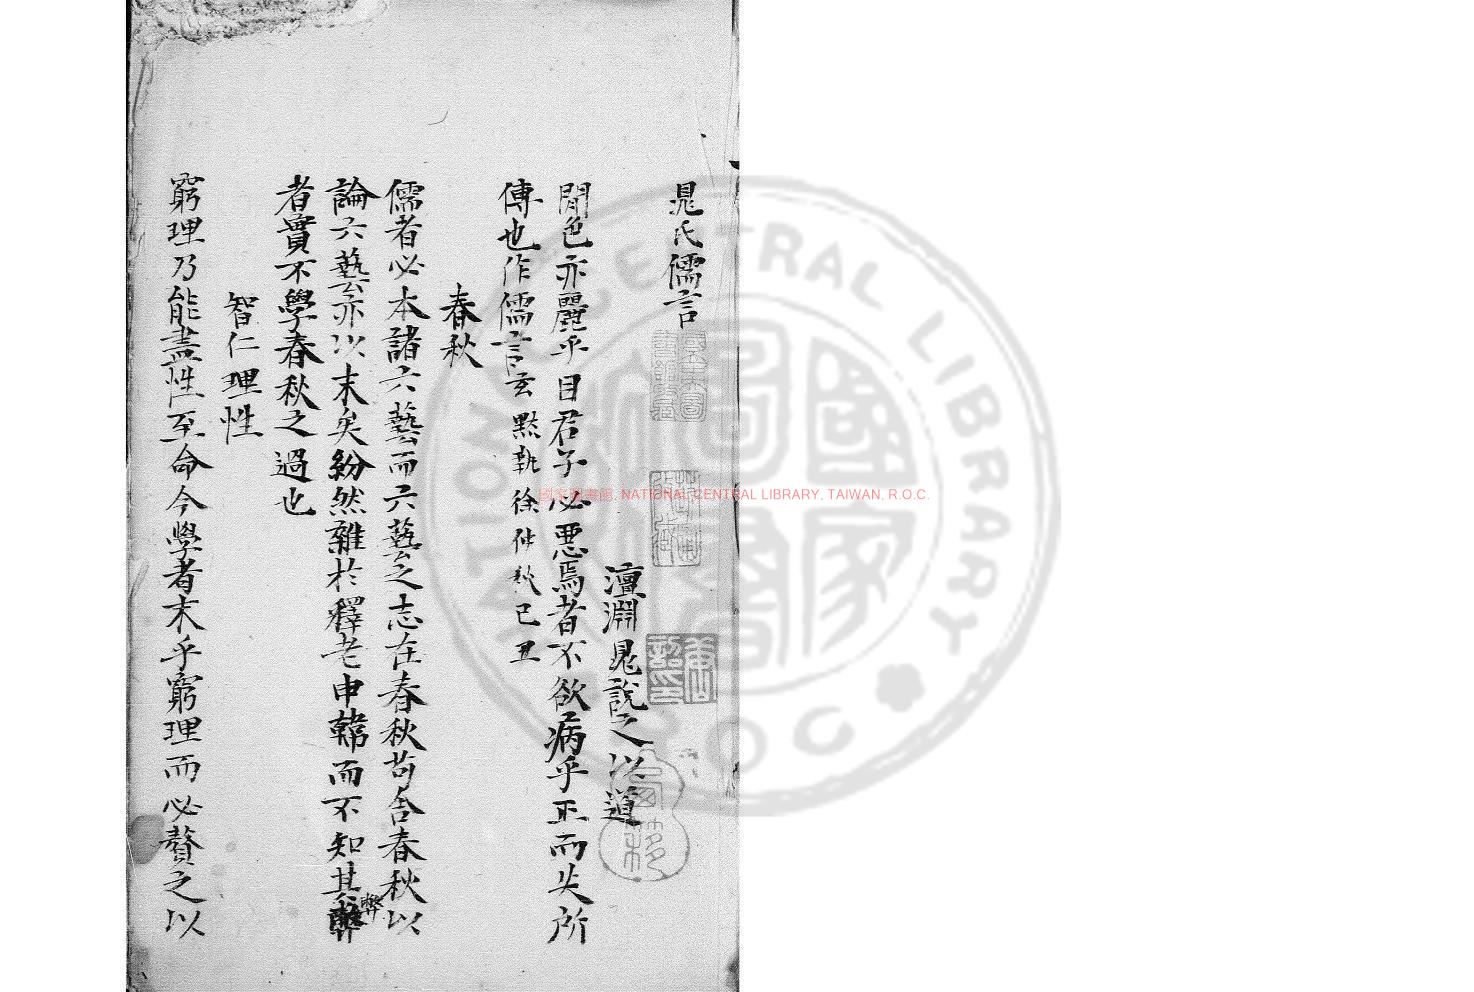 晁氏儒言
澶淵晁說之以道
閒色亦麗乎目君子必惡焉者不欲病乎正而失所
傳也作儒言玄黓執徐仲秋己丑
春秋
儒者必本諸六藝而六藝之志在春秋苟舍春秋以
論六藝亦以末矣紛然雜於釋老申韓而不知其弊
者實不學春秋之過也
智仁理性
窮理乃能盡性至命今學者末乎窮理而必贅之以
國家圖書館, NATIONAL CENTRAL LIBRARY, TAIWAN, R.O.C.
NATIONAL CENTRAL LIBRARY
ROC